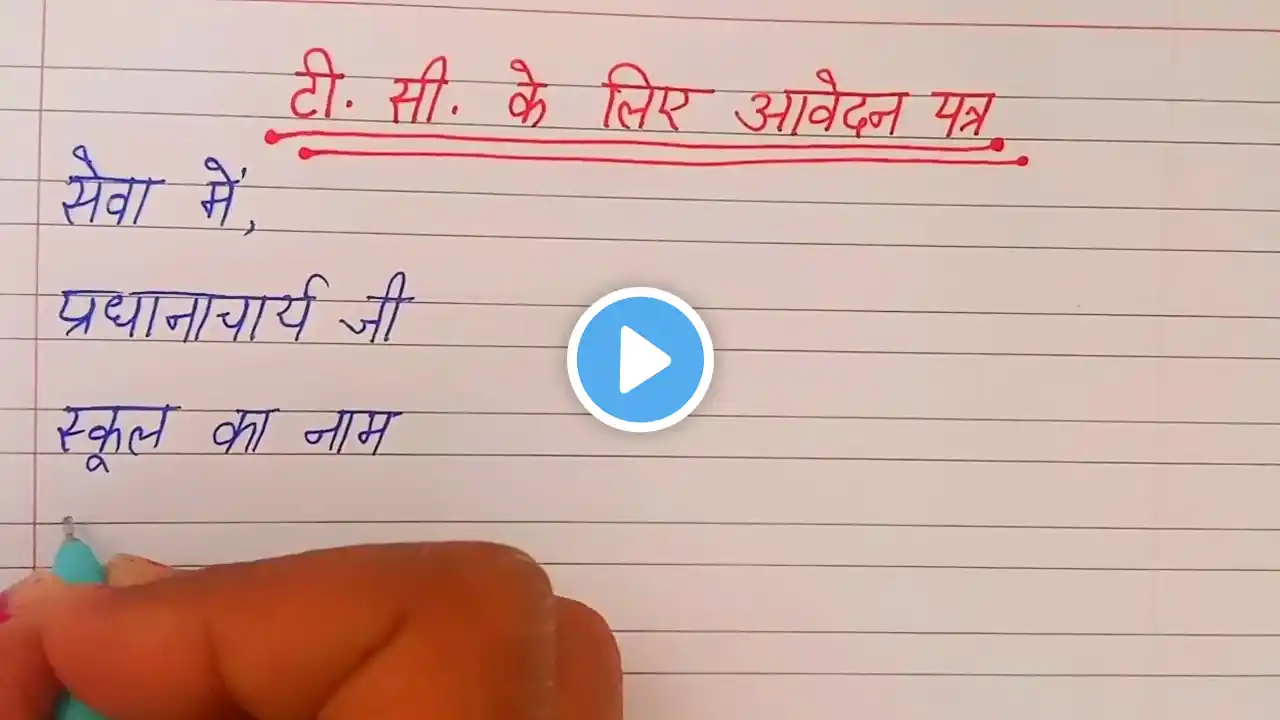 टी. सी. के लिए आवेदन पत्र
सेवा में,
प्रधानाचार्य जी
स्कूल का नाम